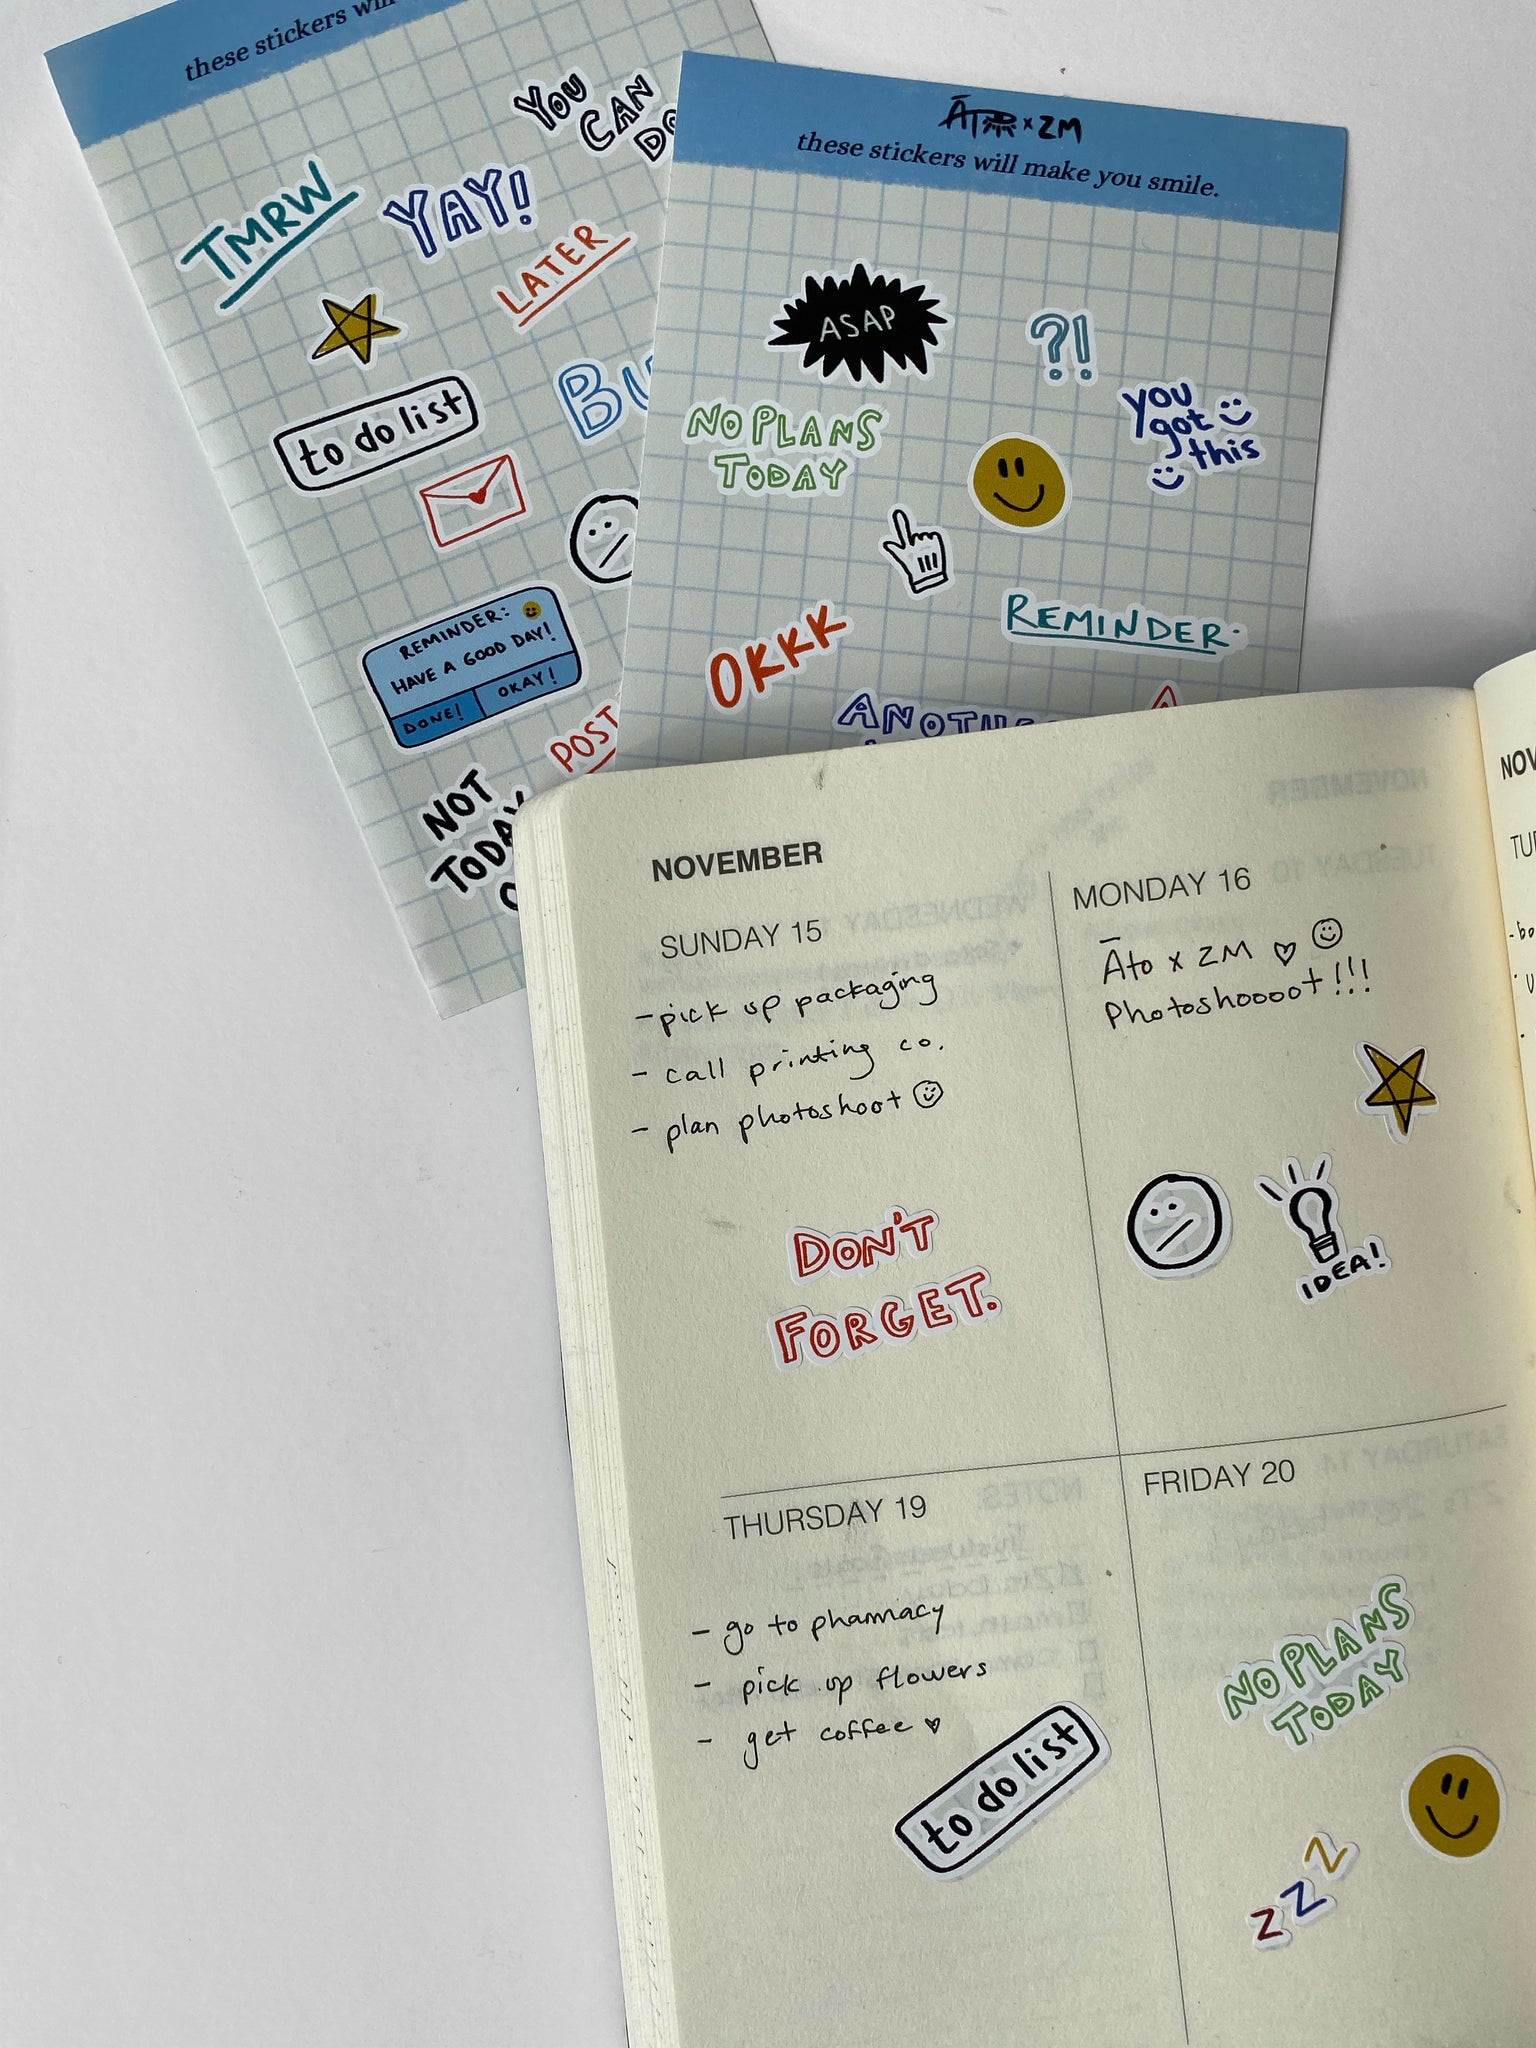 these stickers will
YOU
CAN
DO
TMRW
YAY!
LATER
to do list
REMINDER:
HAVE A GOOD DAY!
DONE!
OKAY!
POST
NOT
TODAY
ĀTO x ZM
these stickers will make you smile.
ASAP
?!
NO PLANS
TODAY
you
got
this
OKKK
REMINDER:
NOVEMBER
SUNDAY 15
- pick up packaging
- call printing co.
- plan photoshoot
DON'T
FORGET.
MONDAY 16
Āto x ZM ♡
Photoshoooot!!!
IDEA!
THURSDAY 19
- go to pharmacy
- pick up flowers
- get coffee ♥
to do list
FRIDAY 20
NO PLANS
TODAY
Z Z Z